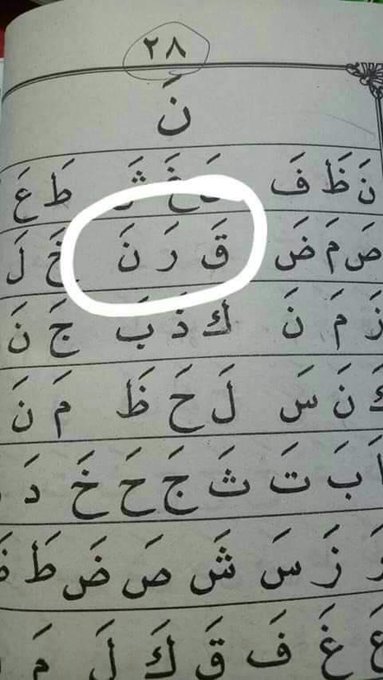 ٢٨
نَ
نَ ظَ فَ غَ شَ طَ عَ
صَ مَ ضَ قَ رَ نَ خَ لَ
زَ مَ نَ كَ ذَ بَ جَ نَ
كَ نَ سَ لَ حَ ظَ مَ نَ
بَ تَ ثَ جَ حَ خَ دَ
زَ سَ شَ صَ ضَ طَ ظَ
عَ غَ فَ قَ كَ لَ مَ